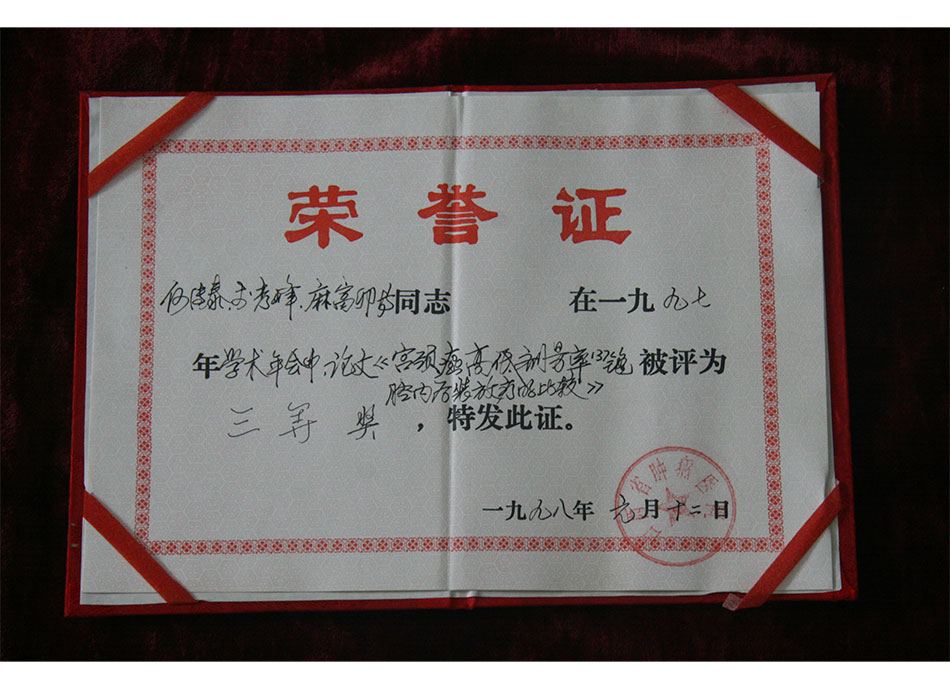 荣誉证
麻富卯等同志 在一九九七
年学术年会中论文《宫颈癌高低剂量率¹³⁷铯 被评为
腔内后装放疗的比较》
三等奖，特发此证。
一九九八年 元月十二日
省肿瘤医